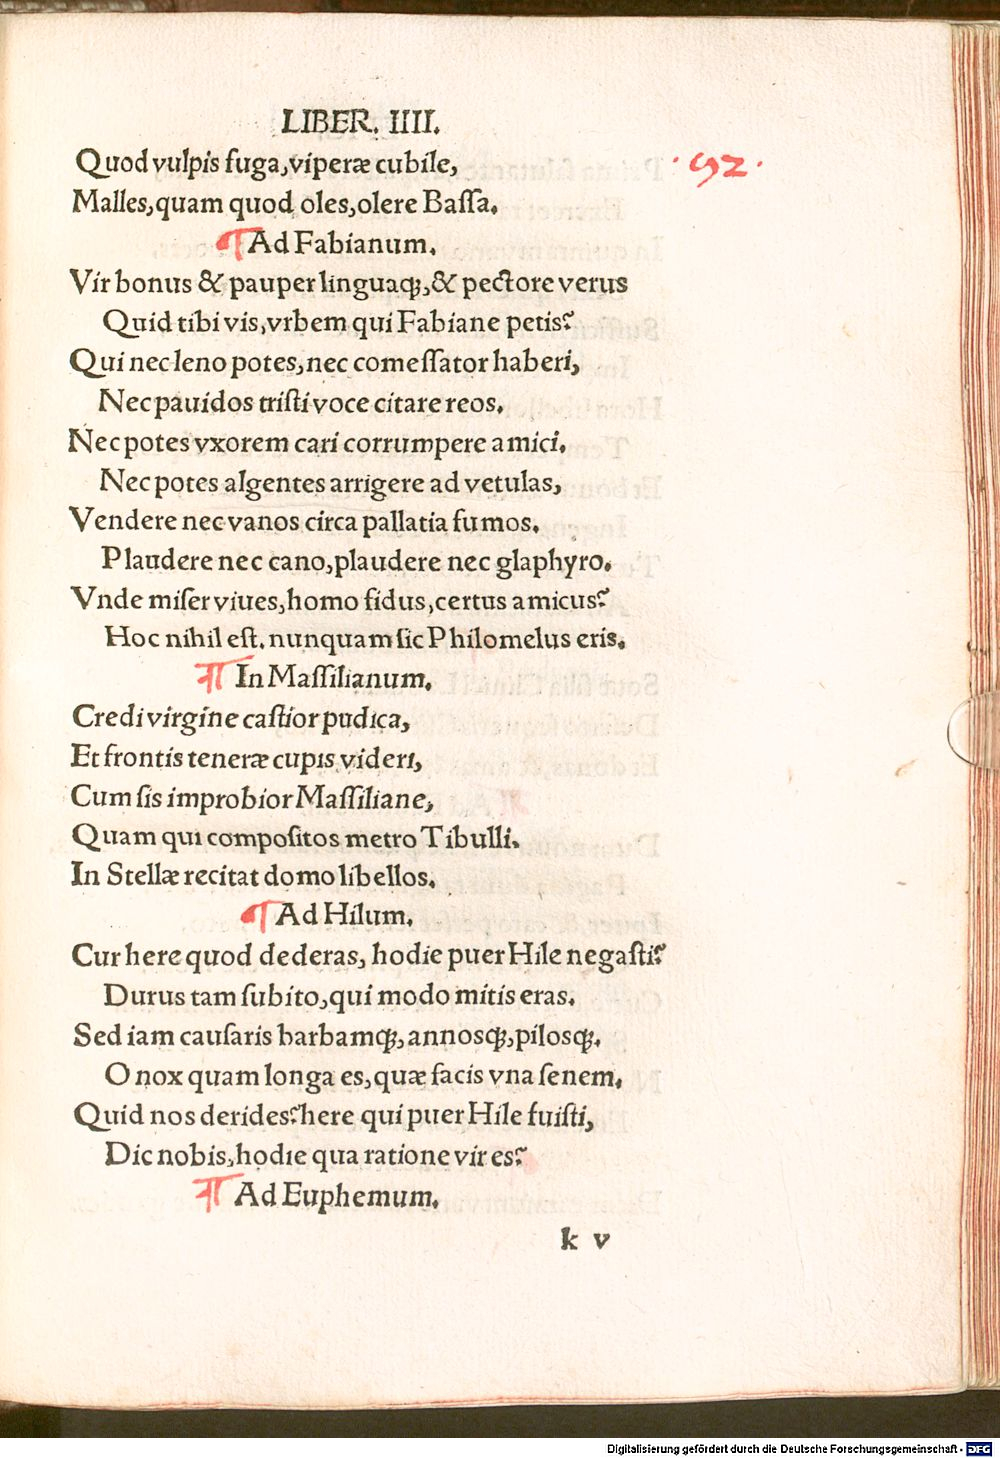 LIBER. IIII.
Quod vulpis fuga,viperæ cubile,
·92·
Malles,quam quod oles,olere Baſſa.
¶ Ad Fabianum.
Vir bonus & pauper linguaq;,& pectore verus
Quid tibi vis,vrbem qui Fabiane petis?
Qui nec leno potes,nec comeſſator haberi,
Nec pauidos triſti voce citare reos.
Nec potes vxorem cari corrumpere amici.
Nec potes algentes arrigere ad vetulas,
Vendere nec vanos circa pallatia fumos.
Plaudere nec cano,plaudere nec glaphyro.
Vnde miſer viues,homo fidus,certus amicus?
Hoc nihil eſt. nunquam ſic Philomelus eris.
¶ In Maſſilianum.
Credi virgine caſtior pudica,
Et frontis teneræ cupis videri,
Cum ſis improbior Maſſiliane,
Quam qui compoſitos metro Tibulli.
In Stellæ recitat domo libellos.
¶ Ad Hilum.
Cur here quod dederas, hodie puer Hile negaſti?
Durus tam ſubito,qui modo mitis eras.
Sed iam cauſaris barbamq;,annosq;,pilosq;.
O nox quam longa es,quæ facis vna ſenem.
Quid nos derides?here qui puer Hile fuiſti,
Dic nobis,hodie qua ratione vir es?
¶ Ad Euphemum.
k v
Digitalisierung gefördert durch die Deutsche Forschungsgemeinschaft - DFG